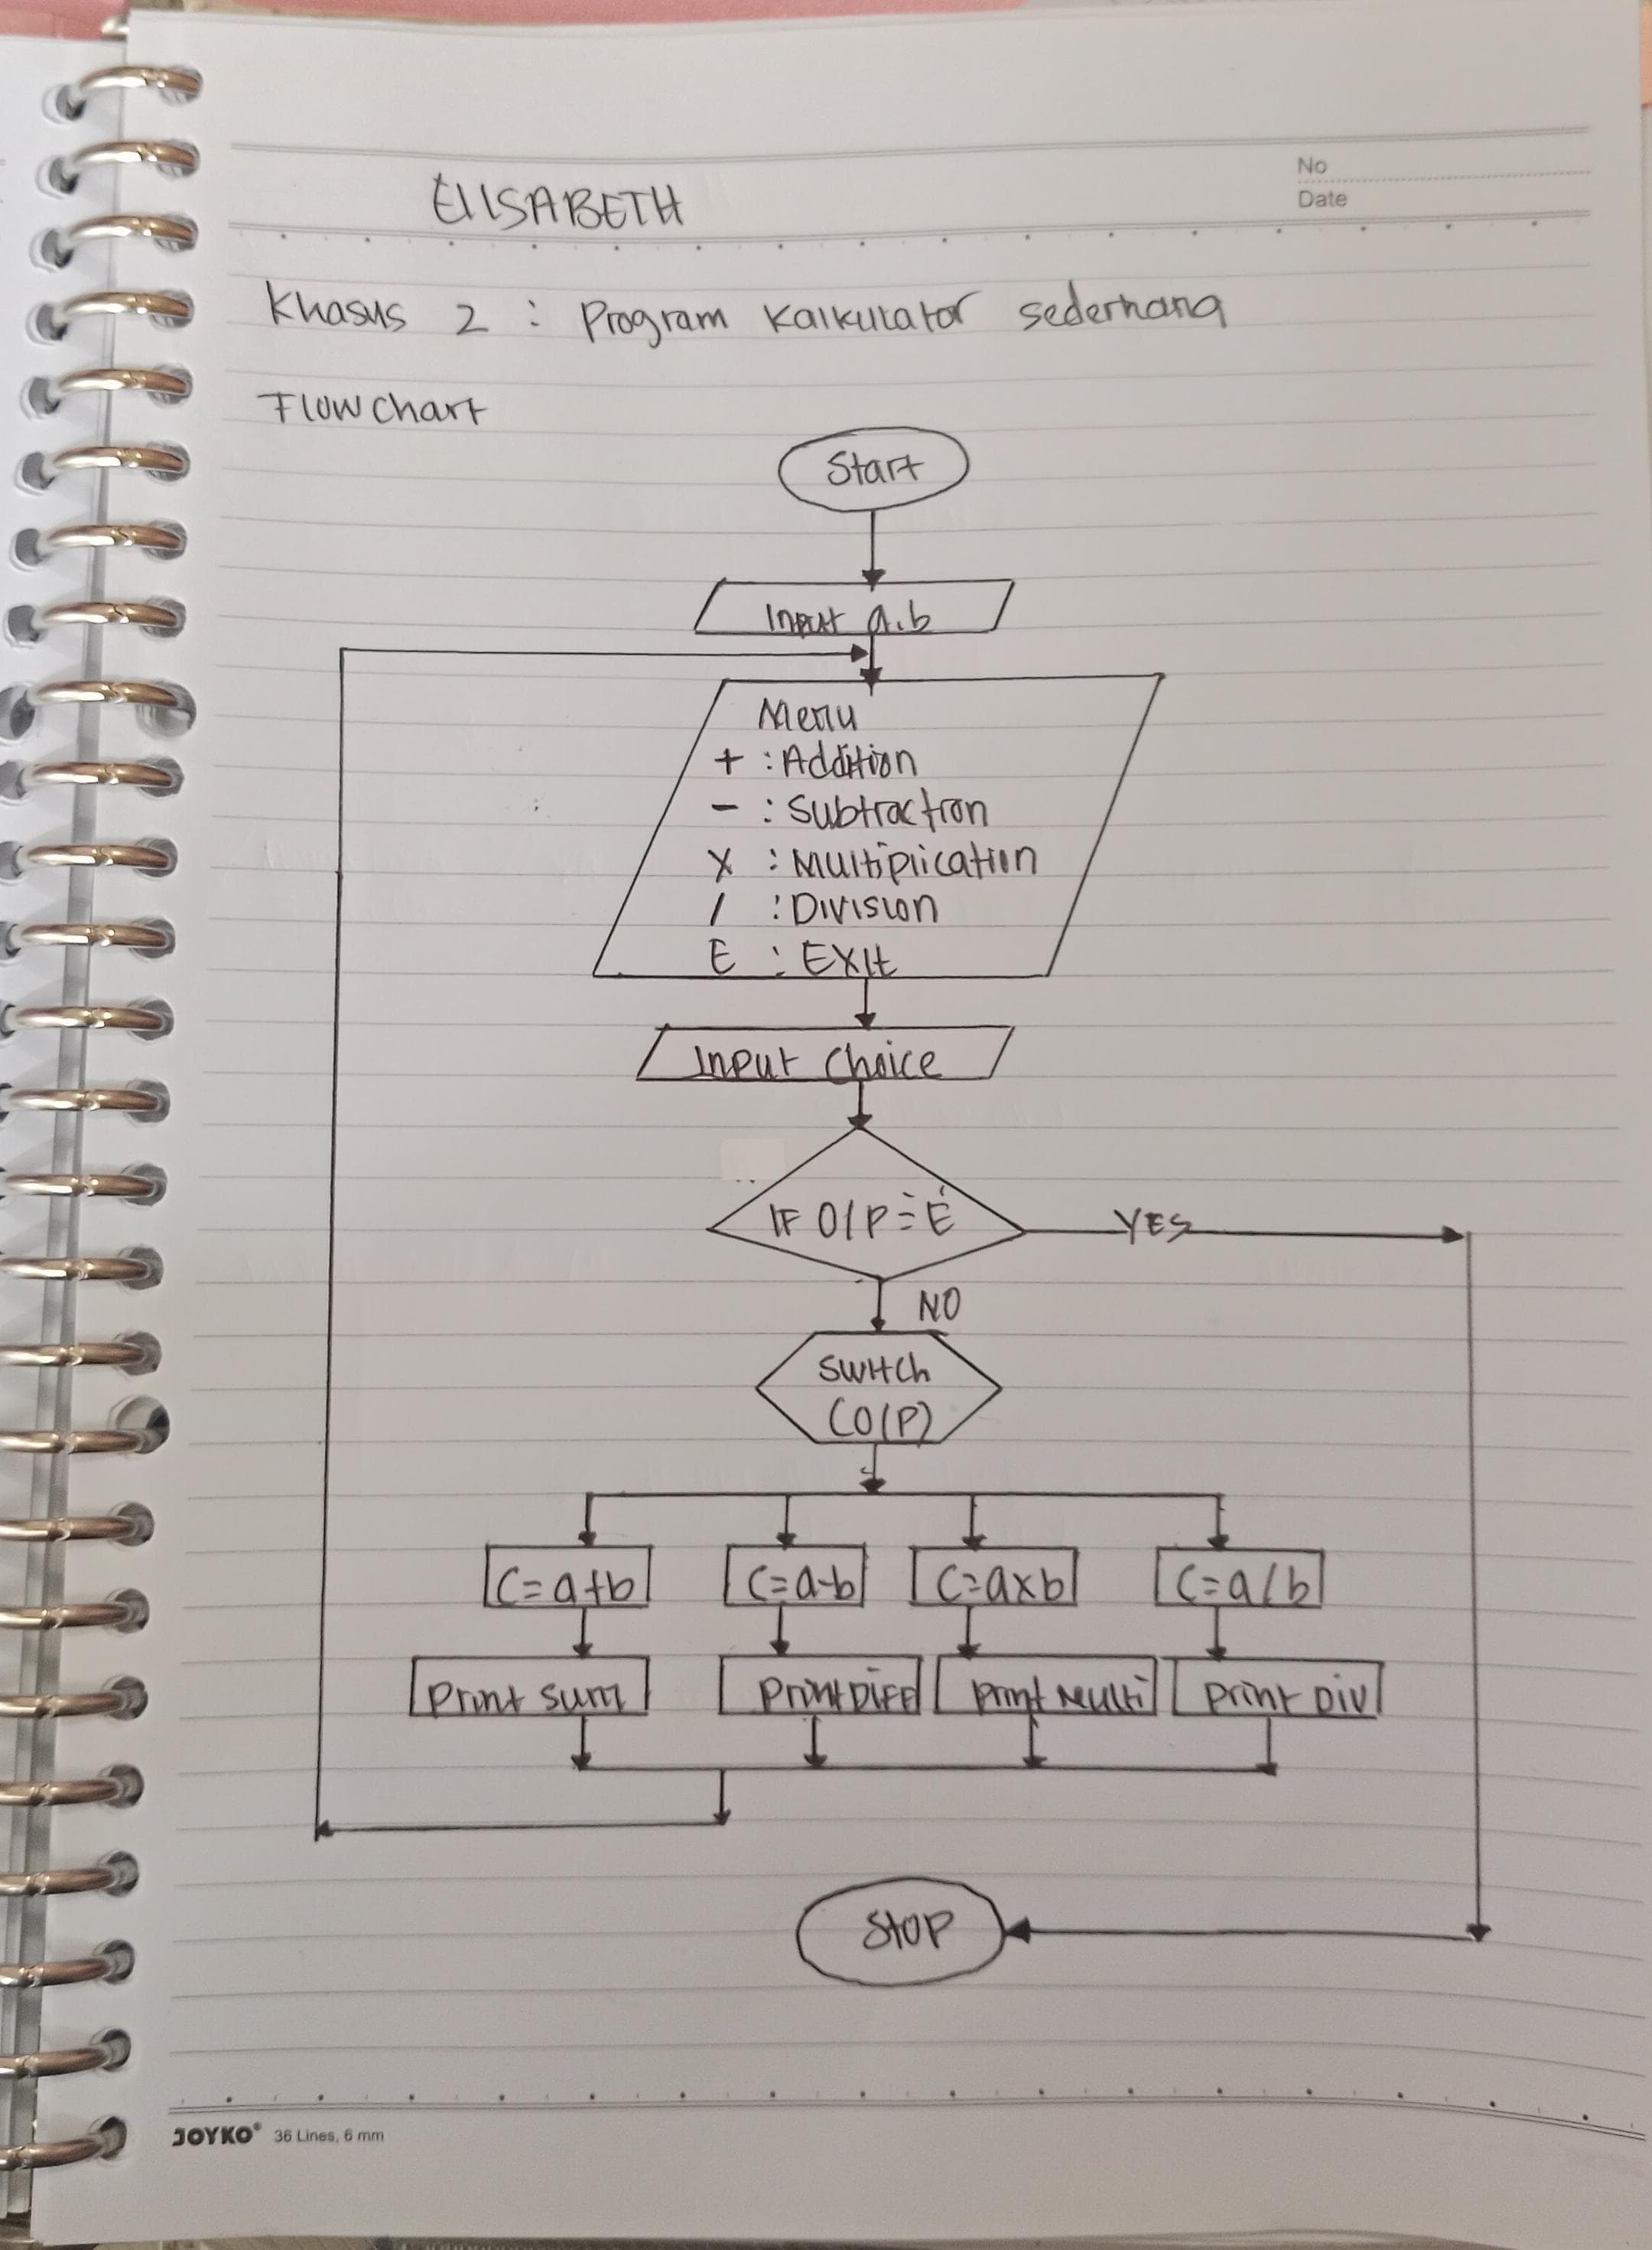 No
Date
ELISABETH
Khasus 2 : Program Kalkulator sederhana
Flowchart
Start
Input a.b
Menu
+ : Addition
- : Subtraction
X : Multiplication
/ : Division
E : Exit
Input Choice
IF O/P = 'E'
YES
NO
Switch
(O/P)
C=a+b
C=a-b
C=axb
C=a/b
Print sum
Print DIFF
Print Multi
Print Div
STOP
JOYKO® 36 Lines, 6 mm